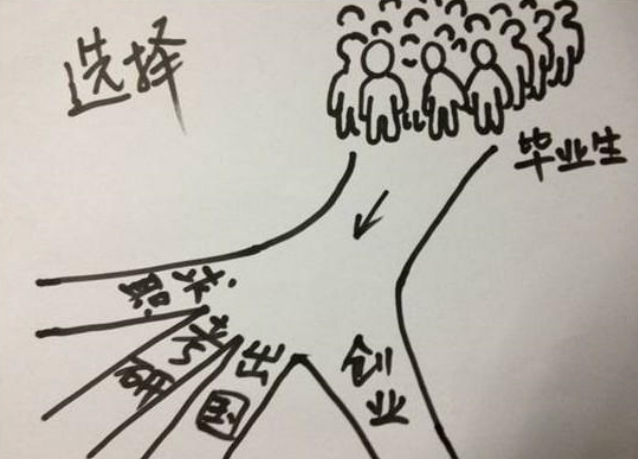 选择
毕业生
求职
考研
出国
创业